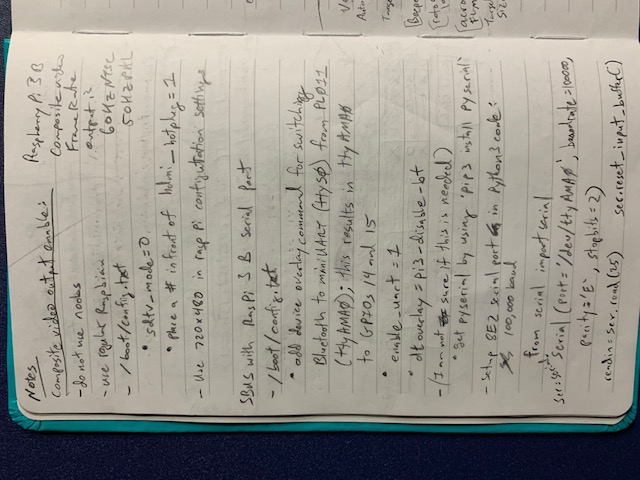 Notes
Composite video output enable:
- do not use noobs
- use regular Raspbian
- /boot/config.txt
• sdtv_mode=0
• place a # in front of hdmi_hotplug=1
- Use 720x480 in rasp Pi configuration settings
Raspberry Pi 3 B
Composite video
Frame Rate
output is
60Hz NTSC
50Hz PAL
SBUS with RasPi 3 B serial port
- /boot/config.txt
• add device overlay command for switching
Bluetooth to miniUART (ttyS0) from PL011
(ttyAMA0); this results in ttyAMA0
to GPIOs 14 and 15
• enable_uart=1
• dtoverlay=pi3-disable-bt
- (I am not sure if this is needed)
• get pyserial by using 'pip3 install pyserial'
- setup 8E2 serial port in Python3 code:
100,000 baud
from serial import serial
ser=serial.Serial(port='/dev/ttyAMA0', baudrate=100000,
parity='E', stopbits=2)
readin=ser.read(25) ser.reset_input_buffer()